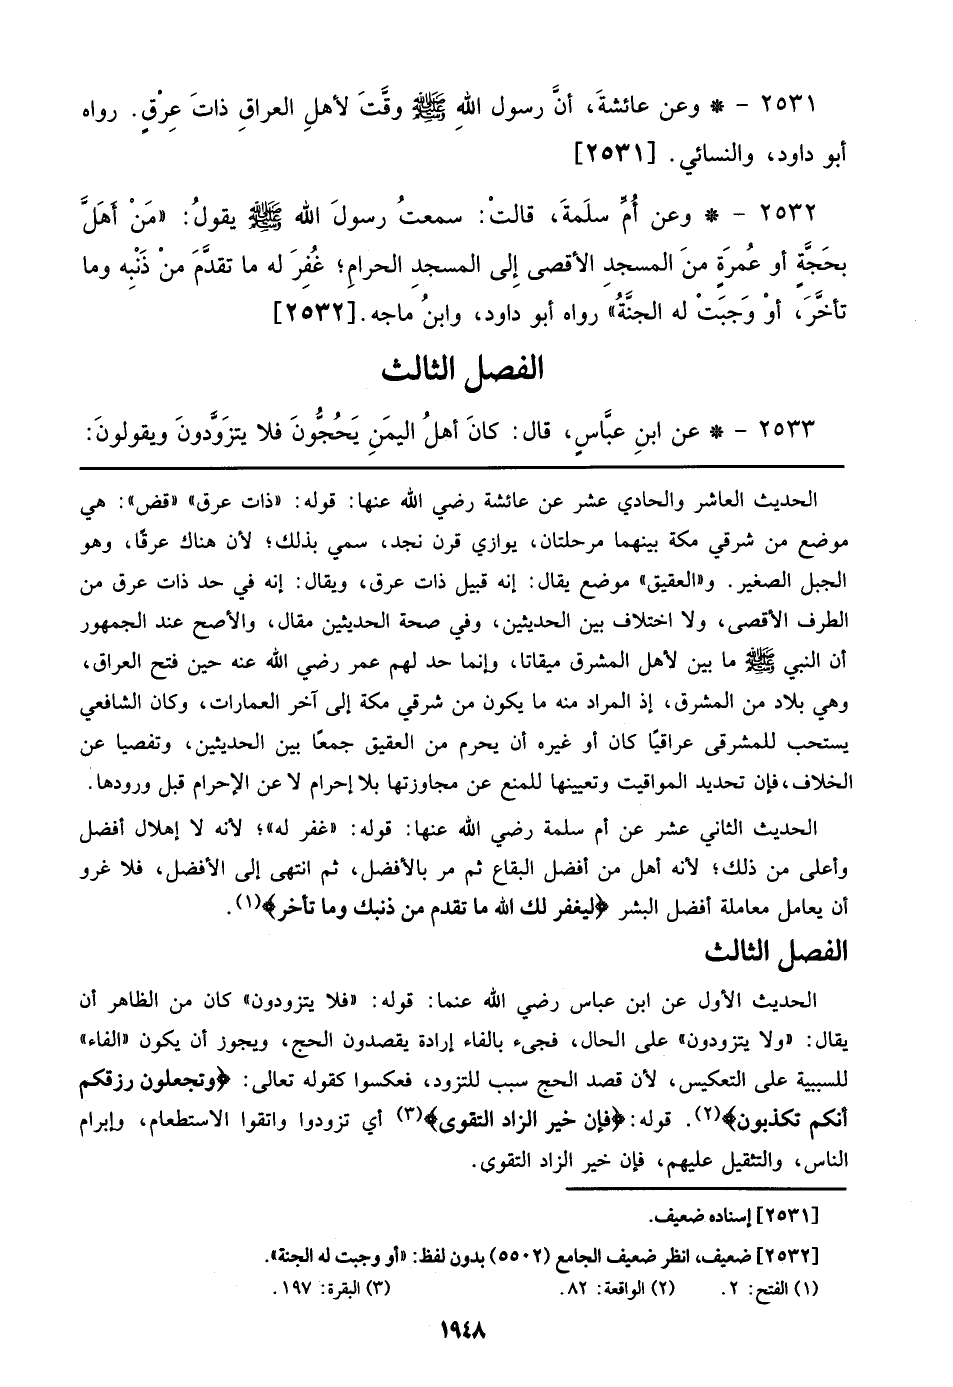 ٢٥٣١ - * وعن عائشةَ، أنَّ رسول اللهِ ﷺ وقَّتَ لأهلِ العراقِ ذاتَ عِرْقٍ. رواه
أبو داود، والنسائي. [٢٥٣١]
٢٥٣٢ - * وعن أُمِّ سلَمةَ، قالتْ: سمعتُ رسولَ الله ﷺ يقولُ: «مَنْ أَهَلَّ
بحَجَّةٍ أو عُمرَةٍ منَ المسجدِ الأقصى إِلى المسجدِ الحرامِ؛ غُفِرَ له ما تقدَّمَ منْ ذَنْبِه وما
تأخَّرَ، أوْ وَجبَتْ له الجنَّةُ» رواه أبو داود، وابنُ ماجه.[٢٥٣٢]
الفصل الثالث
٢٥٣٣ - * عن ابنِ عبَّاسٍ، قال: كانَ أهلُ اليمَنِ يَحُجُّونَ فلا يتزوَّدونَ ويقولونَ:
الحديث العاشر والحادي عشر عن عائشة رضي الله عنها: قوله: «ذات عرق» «قض»: هي
موضع من شرقي مكة بينهما مرحلتان، يوازي قرن نجد، سمي بذلك؛ لأن هناك عرقًا، وهو
الجبل الصغير. و«العقيق» موضع يقال: إنه قبيل ذات عرق، ويقال: إنه في حد ذات عرق من
الطرف الأقصى، ولا اختلاف بين الحديثين، وفي صحة الحديثين مقال، والأصح عند الجمهور
أن النبي ﷺ ما بين لأهل المشرق ميقاتا، وإنما حد لهم عمر رضي الله عنه حين فتح العراق،
وهي بلاد من المشرق، إذ المراد منه ما يكون من شرقي مكة إلى آخر العمارات، وكان الشافعي
يستحب للمشرقى عراقيًا كان أو غيره أن يحرم من العقيق جمعًا بين الحديثين، وتفصيا عن
الخلاف،فإن تحديد المواقيت وتعيينها للمنع عن مجاوزتها بلا إحرام لا عن الإحرام قبل ورودها.
الحديث الثاني عشر عن أم سلمة رضي الله عنها: قوله: «غفر له»؛ لأنه لا إهلال أفضل
وأعلى من ذلك؛ لأنه أهل من أفضل البقاع ثم مر بالأفضل، ثم انتهى إلى الأفضل، فلا غرو
أن يعامل معاملة أفضل البشر ﴿ليغفر لك الله ما تقدم من ذنبك وما تأخر﴾(١).
الفصل الثالث
الحديث الأول عن ابن عباس رضي الله عنما: قوله: «فلا يتزودون» كان من الظاهر أن
يقال: «ولا يتزودون» على الحال، فجىء بالفاء إرادة يقصدون الحج، ويجوز أن يكون «الفاء»
للسببية على التعكيس، لأن قصد الحج سبب للتزود، فعكسوا كقوله تعالى: ﴿وتجعلون رزقكم
أنكم تكذبون﴾(٢). قوله: ﴿فإن خير الزاد التقوى﴾(٣) أي تزودوا واتقوا الاستطعام، وإبرام
الناس، والتثقيل عليهم، فإن خير الزاد التقوى.
[٢٥٣١] إسناده ضعيف.
[٢٥٣٢] ضعيف، انظر ضعيف الجامع (٥٥٠٢) بدون لفظ: «أو وجبت له الجنة».
(١) الفتح: ٢. (٢) الواقعة: ٨٢. (٣) البقرة: ١٩٧.
١٩٤٨